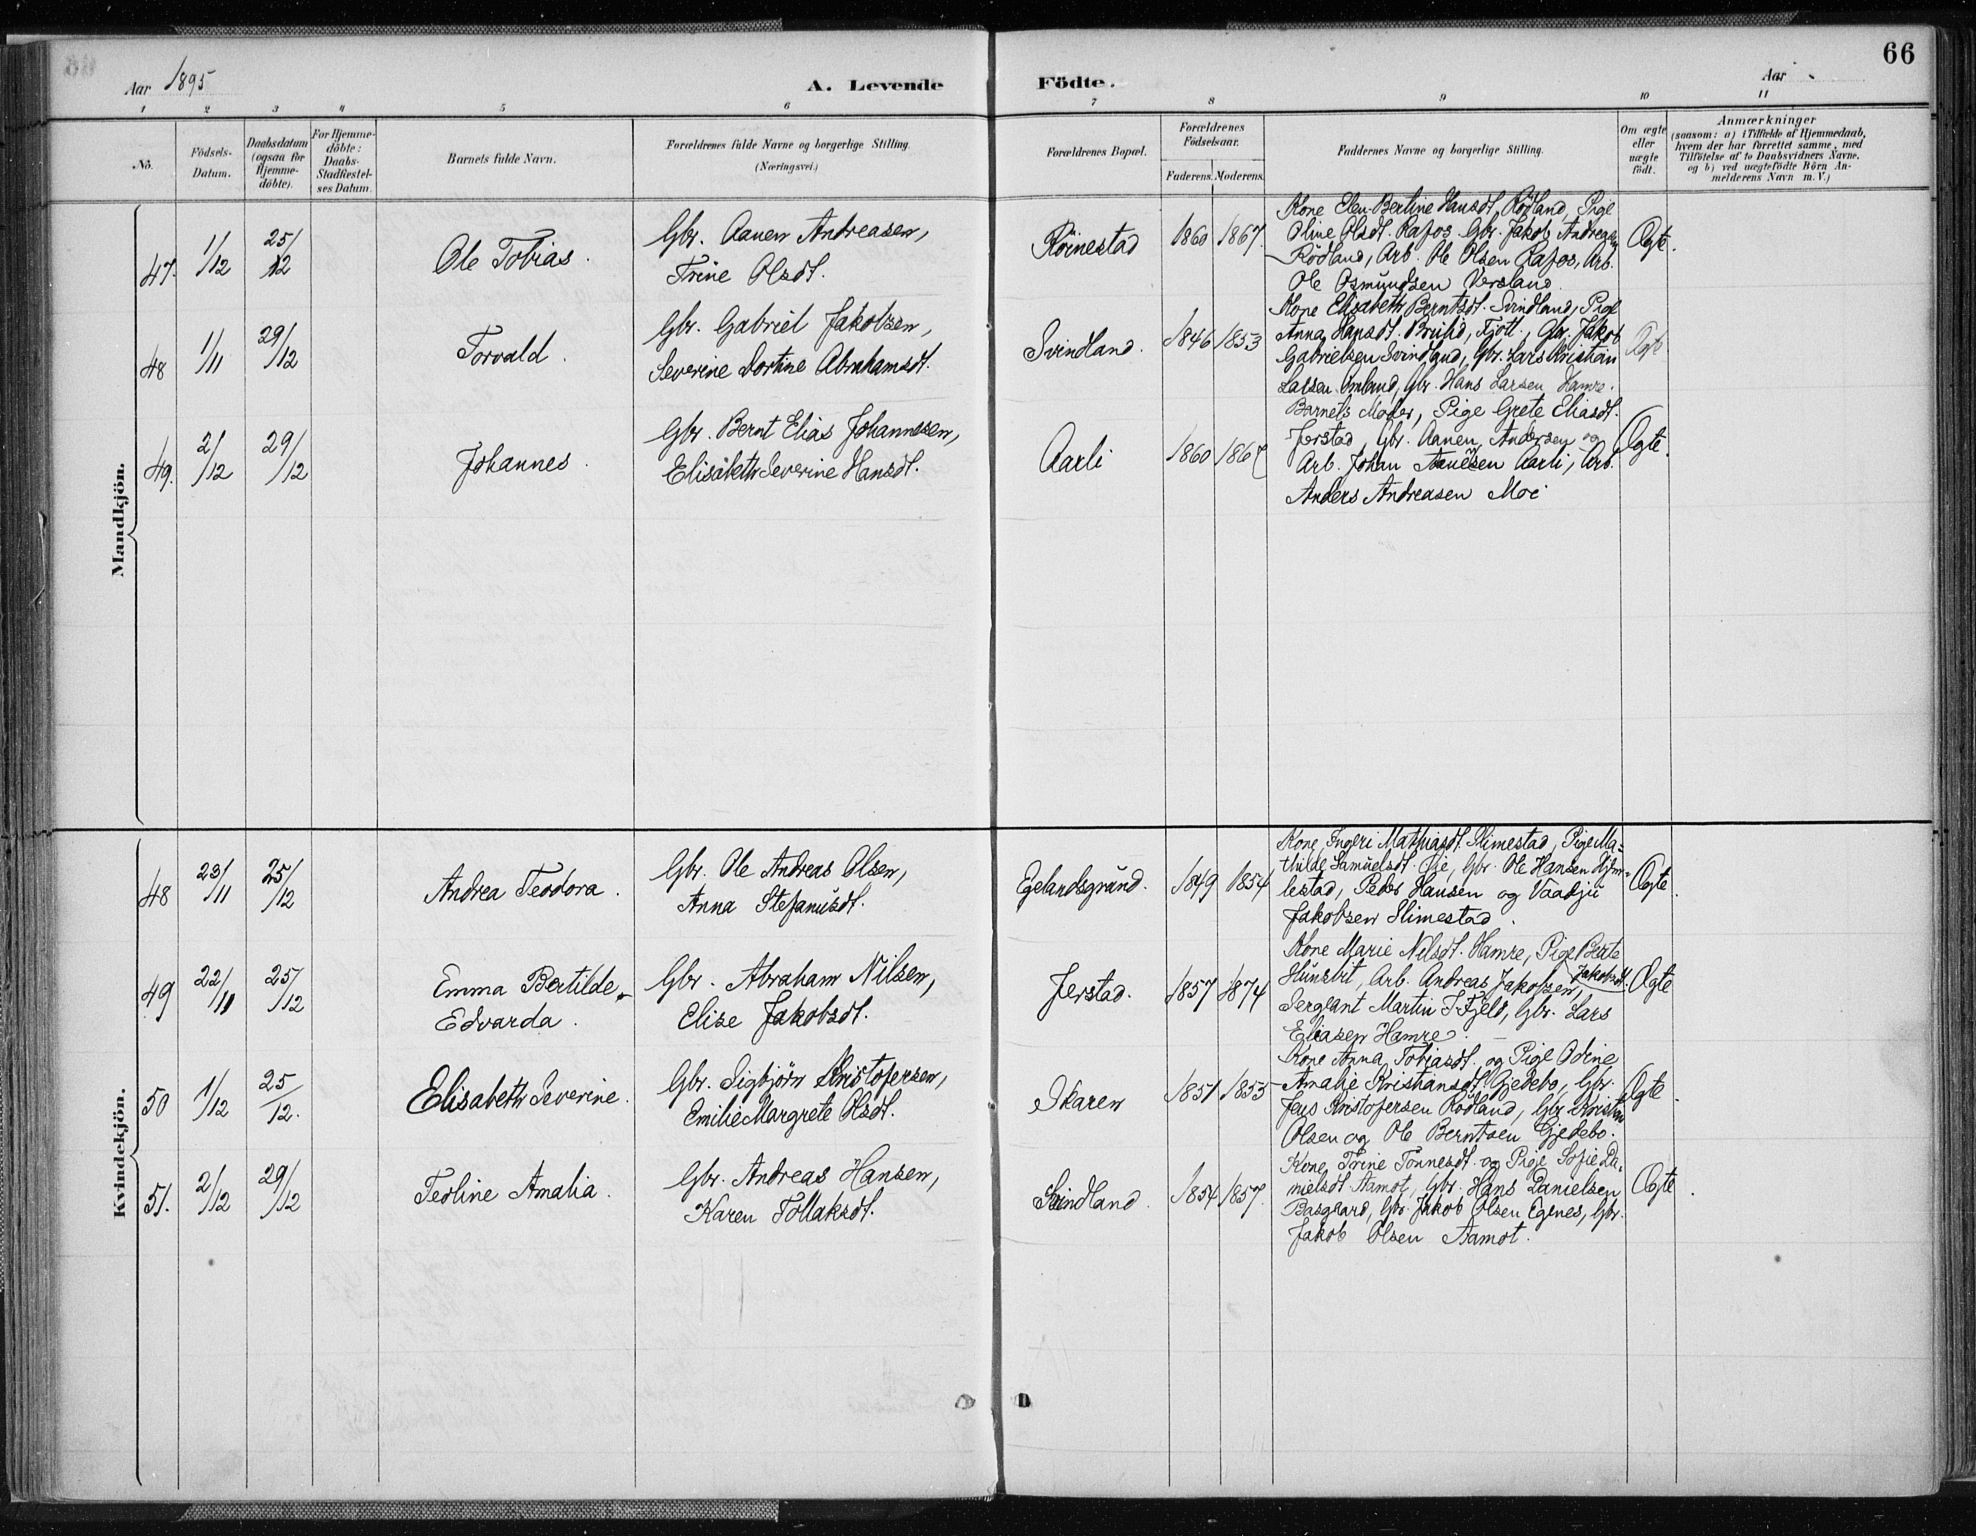 66
Aar 1895
A. Levende
Födte.
Aar
1 2 3 4 5 6 7 8 9 10 11
No.
Födsels-Datum.
Daabsdatum (ogsaa for Hjemme-döbte).
For Hjemme-döbte: Daabs-Stadfæstel-ses Datum.
Barnets fulde Navn.
Forældrenes fulde Navne og borgerlige Stilling.
(Næringsvei.)
Forældrenes Bopæl.
Forældrenes Födselsaar.
Faderens. Moderens.
Faddernes Navne og borgerlige Stilling.
Om ægte eller uægte födt.
Anmærkninger
(saasom: a) i Tilfælde af Hjemmedaab,
hvem der har forrettet samme, med
Tilföielse af to Daabsvidners Navne,
og b) ved uægtefödte Börn An-
melderens Navn m. V.)
Mandkjön.
47. 1/12 25/12 Ole Tobias.
Gbr. Aanen Andreasen,
Trine Olsdt.
Röinestad 1860 1867.
Kone Elen Bertine Hansdt. Rödland, Pige
Oline Olsdt. Rafos, Gbr. Jakob Andreasen
Rödland, Arb. Ole Olsen Rafos, Arb.
Ole Osmundsen Versland.
Ægte.
48 1/11 29/12 Torvald.
Gbr. Gabriel Jakobsen,
Severine Dortine Abrahamsdt.
Svindland. 1846 1853
Kone Elisabeth Berntsdt. Svindland, Pige
Anna Hansdt. Fjotl., Gbr. Jakob
Gabrielsen Svindland, Gbr. Lars Kristian
Larsen Omland, Gbr. Hans Larsen Hamre.
Ægte
49. 2/12 29/12 Johannes.
Gbr. Bernt Elias Johannesen,
Elisabeth Severine Hansdt.
Aarli 1860 1867
Barnets Moder, Pige Grete Eliasdt.
Jerstad, Gbr. Aanen Andersen og
Arb. Johan Aanesen Aarli, Arb.
Anders Andreasen Moi
Ægte.
Kvindekjön.
48 23/11 25/12 Andrea Teodora.
Gbr. Ole Andreas Olsen,
Anna Stefanusdt.
Egelandsgrund. 1849 1854
Kone Ingeri Mathiasdt. Slimestad, Pige Ma-
thilde Samuelsdt. Öie, Gbr. Ole Hansen
lestad, Peder Hansen og Vaadju
Jakobsen Slimestad.
Ægte.
49 22/11 25/12 Emma Bertilde
Edvarda.
Gbr. Abraham Nilsen,
Elise Jakobsdt.
Jerstad. 1857 1874
Kone Marie Nilsdt. Hamre, Pige Berte
Jakobsdt.
Hunsbit, Arb. Andreas Jakobsen,
Sergeant Martin T. Fjeld, Gbr. Lars
Eliasen Hamre.
Ægte
50 1/12 25/12. Elisabeth Severine.
Gbr. Sigbjörn Kristofersen,
Emilie Margrete Olsdt.
Skaren 1851 1855
Kone Anna Tobiasdt. og Pige Odine
Amalie Kristiansdt. Gjedebo, Gbr.
Jens Kristofersen Rödland, Gbr. Kristian
Olsen og Ole Berntsen Gjedebo.
Ægte.
51. 2/12 29/12 Teoline Amalia.
Gbr. Andreas Hansen,
Karen Tollaksdt.
Svindland. 1854 1857.
Kone Trine Tönnesdt. og Pige Sofie Da-
nielsdt. Aamot, Gbr. Hans Danielsen
Basgaard, Gbr. Jakob Olsen Egenes, Gbr.
Jakob Olsen Aamot.
Ægte.
D